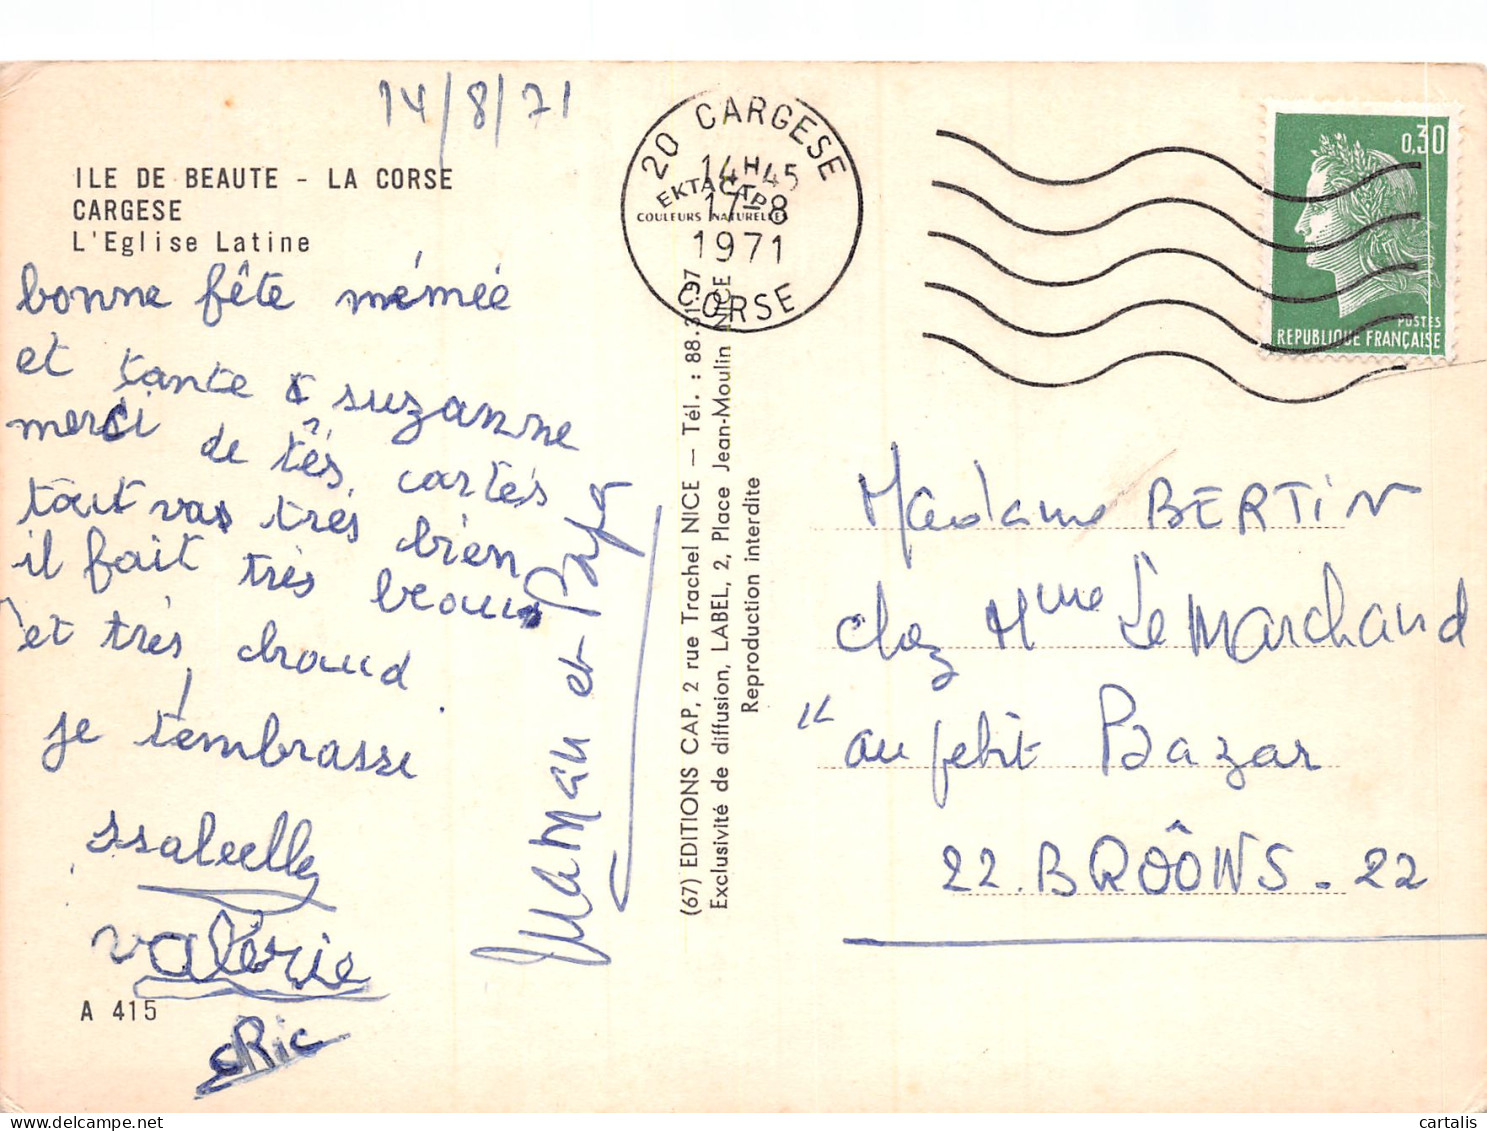 14/8/71
ILE DE BEAUTE - LA CORSE
CARGESE
L'Eglise Latine
bonne fête mémée
et tante suzanne
merci de tês cartés
tout vas très bien
il fait très beau
et très chaud
je t'embrasse
Issabelle
Valérie
eRic
A 415
Maman et Papa
20 CARGESE
14H45
17-8
1971
CORSE
EKTACAP
COULEURS NATURELLES
(67) EDITIONS CAP, 2 rue Trachel NICE — Tél. : 88.31.97
Exclusivité de diffusion, LABEL, 2, Place Jean-Moulin NICE
Reproduction interdite
0,30
POSTES
REPUBLIQUE FRANÇAISE
Madame BERTIN
chez Mme Le Marchand
"au petit Bazar
22.BRÔONS-22
cartalis